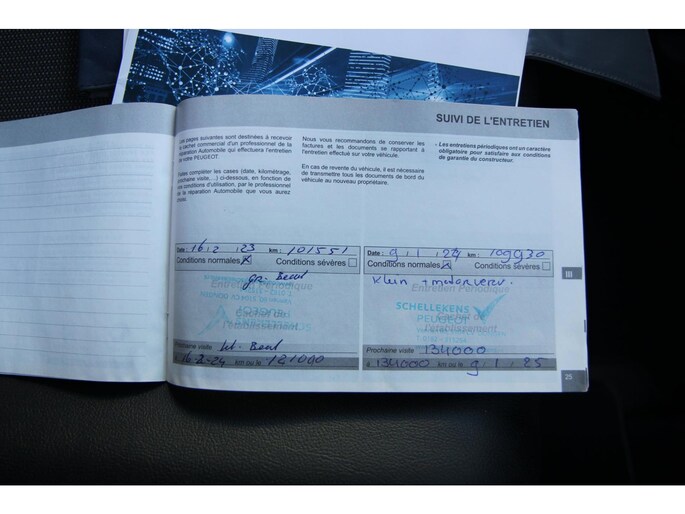 SUIVI DE L'ENTRETIEN
pages suivantes sont destinées à recevoir
cachet commercial d'un professionnel de la
réparation Automobile qui effectuera l'entretien
de votre PEUGEOT.
compléter les cases (date, kilométrage,
prochaine visite,...) ci-dessous, en fonction de
vos conditions d'utilisation, par le professionnel
de la réparation Automobile que vous aurez
Nous vous recommandons de conserver les
factures et les documents se rapportant à
l'entretien effectué sur votre véhicule.
En cas de revente du véhicule, il est nécessaire
de transmettre tous les documents de bord du
véhicule au nouveau propriétaire.
- Les entretiens périodiques ont un caractère
obligatoire pour satisfaire aux conditions
de garantie du constructeur.
Date : 16.2.23 km : 101551
Conditions normales Conditions sévères
gr. Beurt
Entretien Périodique
Cachet de
l'établissement
Prochaine visite kl. Beurt
à 16-2-24 km ou le 121000
Date : 9.1.24 km : 109930
Conditions normales Conditions sévères
Klein +
Entretien Périodique
SCHELLEKENS
PEUGEOT
Cachet de
l'établissement
Prochaine visite 134000
à 134000 km ou le 9.1.25
III
25